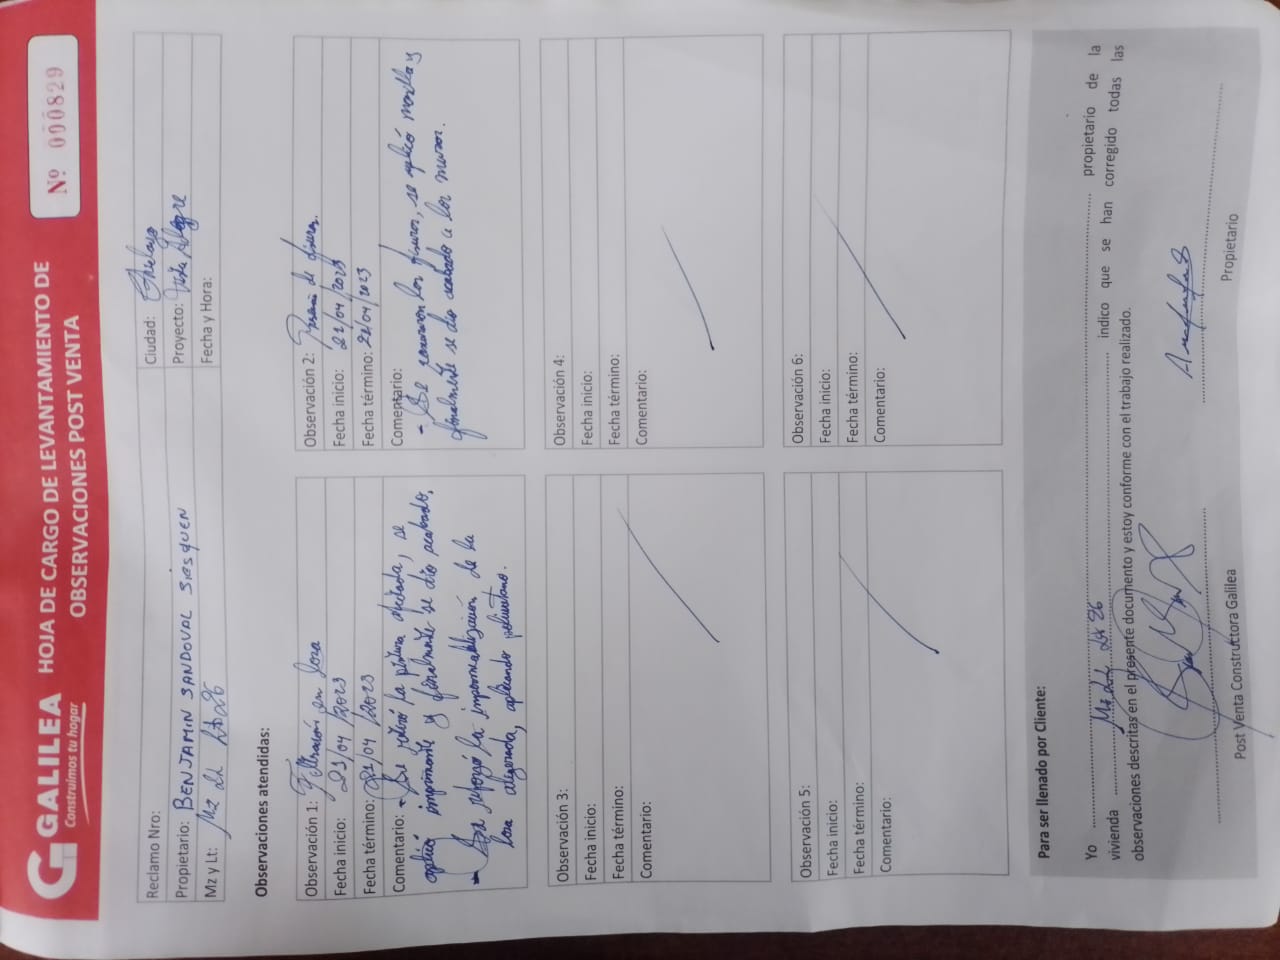 GALILEA
Construimos tu hogar
HOJA DE CARGO DE LEVANTAMIENTO DE
OBSERVACIONES POST VENTA
Nº 000829
Reclamo Nro:
Propietario: BENJAMIN SANDOVAL SIESQUEN
Mz y Lt: Mz LL Lt 26
Ciudad: Chiclayo
Proyecto: Vista Alegre
Fecha y Hora:
Observaciones atendidas:
Observación 1: Filtración en losa
Fecha inicio: 21/04/2023
Fecha término: 21/04/2023
Comentario: - Se retiró la pintura afectada, se
aplicó imprimante y finalmente se dio acabado,
- Se reforzó la impermeabilización de la
losa aligerada, aplicando poliuretano.
Observación 2: de fisuras.
Fecha inicio: 22/04/2023
Fecha término: 22/04/2023
Comentario:
- Se las fisuras, se aplicó masilla y
finalmente se dio acabado a los muros.
Observación 3:
Fecha inicio:
Fecha término:
Comentario:
Observación 4:
Fecha inicio:
Fecha término:
Comentario:
Observación 5:
Fecha inicio:
Fecha término:
Comentario:
Observación 6:
Fecha inicio:
Fecha término:
Comentario:
Para ser llenado por Cliente:
Yo ........ propietario de la
vivienda Mz LL Lt 26 indico que se han corregido todas las
observaciones descritas en el presente documento y estoy conforme con el trabajo realizado.
Post Venta Constructora Galilea
Propietario